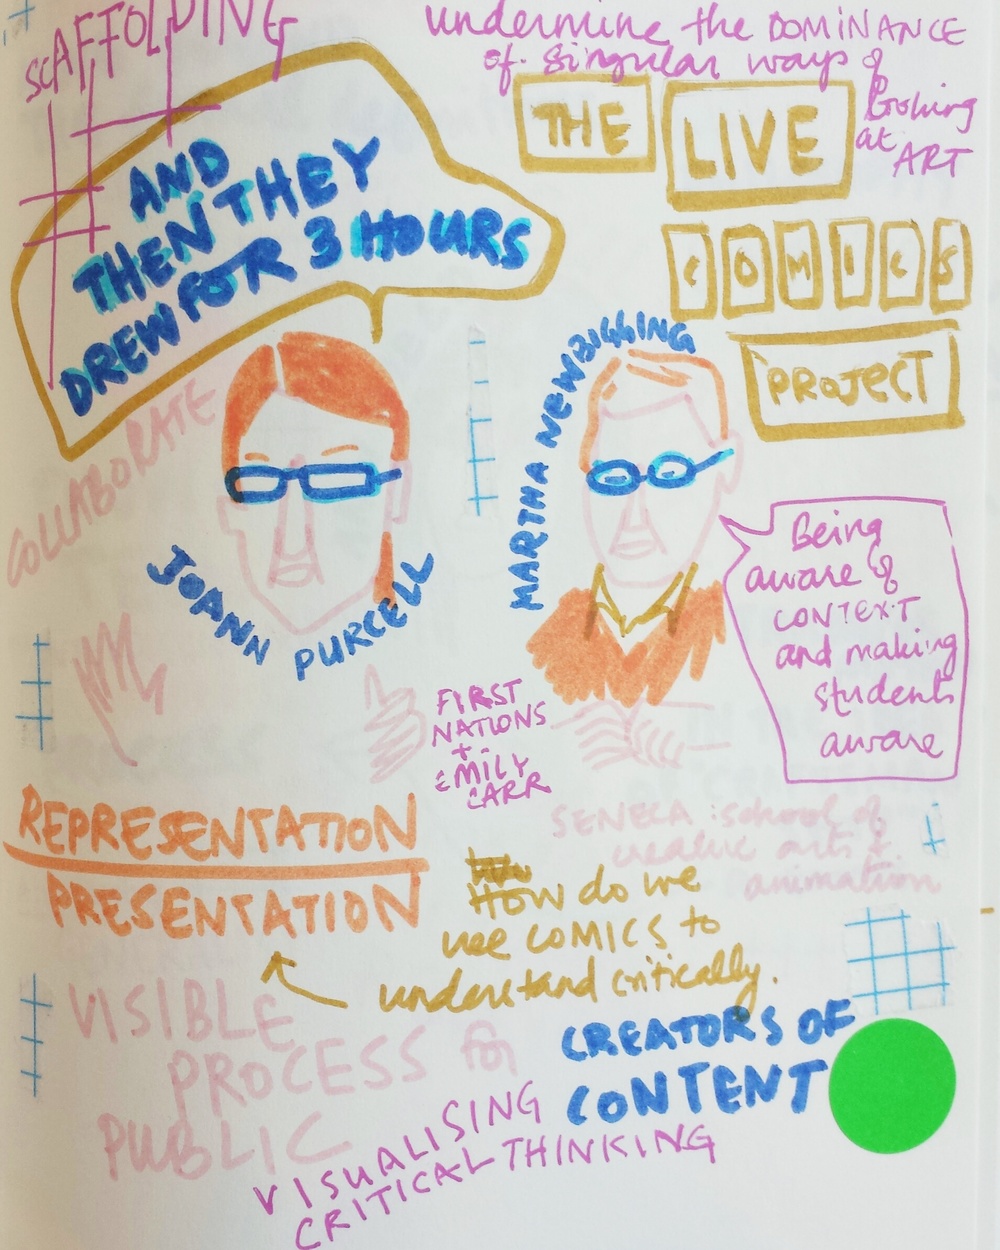 SCAFFOLDING
undermine the DOMINANCE
of singular ways of
looking
at
ART
THE LIVE
COMICS
PROJECT
AND
THEN THEY
DREW FOR 3 HOURS
COLLABORATE
JOANN PURCELL
MARTHA NEWBIGGING
Being
aware of
CONTEXT
and making
students
aware
FIRST
NATIONS
+
EMILY
CARR
SENECA school of
creative arts &
animation
REPRESENTATION
PRESENTATION
HOW do we
use COMICS to
understand critically.
VISIBLE
PROCESS for
PUBLIC
CREATORS OF
CONTENT
VISUALISING
CRITICAL THINKING